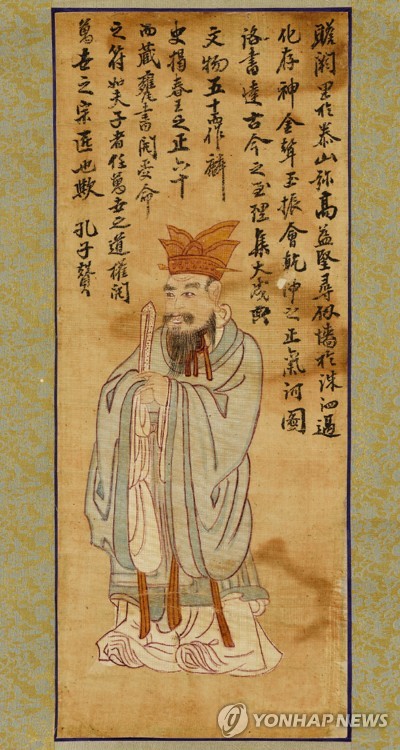 瞻闕里於泰山弥高益堅尋仭墻於洙泗過
化存神金聲玉振會乾坤之正氣河圖
洛書達古今之至理集大成
文物五十而作麟
史揭春王之正六十
而藏甕書受命
之符如夫子者任萬世之道權
萬世之宗匠也歟 孔子贊
YONHAP NEWS